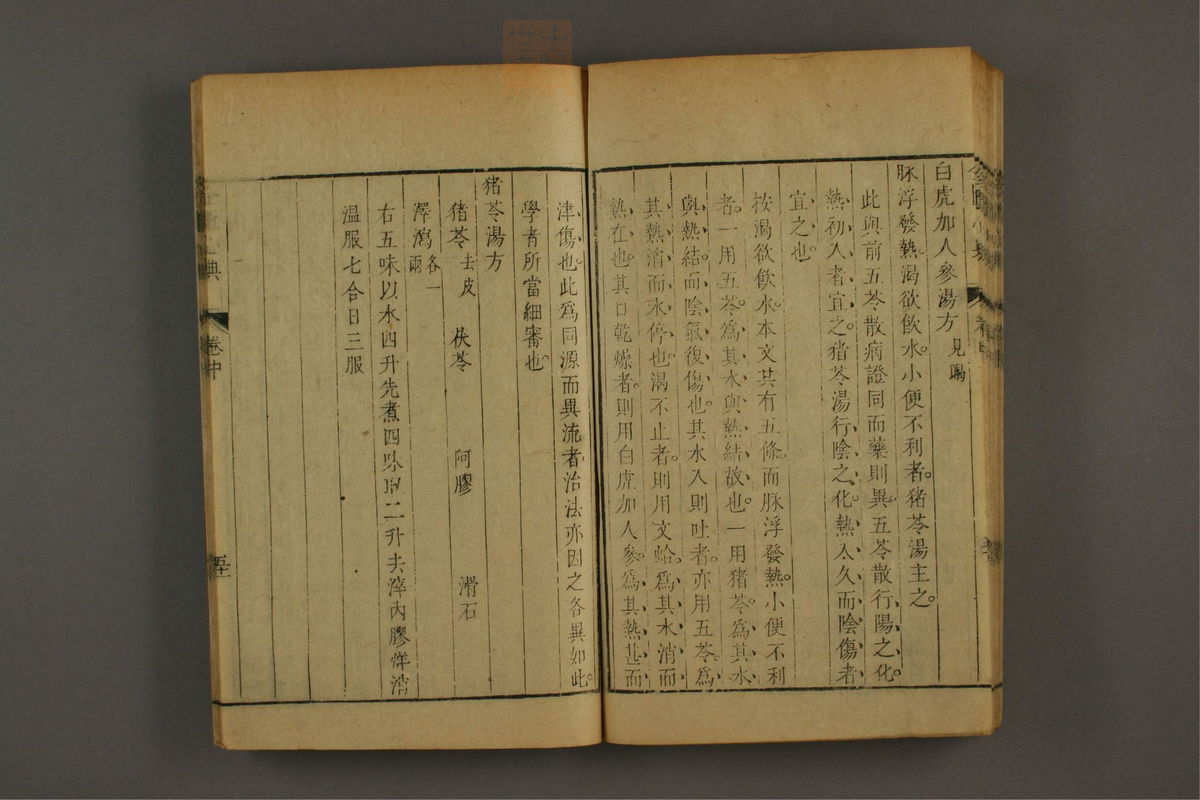 白虎加人參湯方見暍
脉浮發熱渴欲飲水。小便不利者。猪苓湯主之。
此與前五苓散病證同而藥則異五苓散行陽之化。
熱初入者宜之。猪苓湯行陰之化。熱入久而陰傷者
宜之也
按渴欲飲水本文共有五條。而脉浮發熱。小便不利
者。一用五苓。爲其水與熱結故也。一用猪苓。爲其水
與熱結。而陰氣復傷也。其水入則吐者。亦用五苓。爲
其熱消而水停也。渴不止者。則用文蛤。爲其水消而
熱在也。其口乾燥者。則用白虎加人參。爲其熱甚而
津傷也。此爲同源而異流者。治法亦因之各異如此。
學者所當細審也。
猪苓湯方
猪苓去皮 茯苓 阿膠 滑石
澤瀉各一兩
右五味以水四升先煮四味取二升去滓內膠烊消
溫服七合日三服
典 卷中 五十二